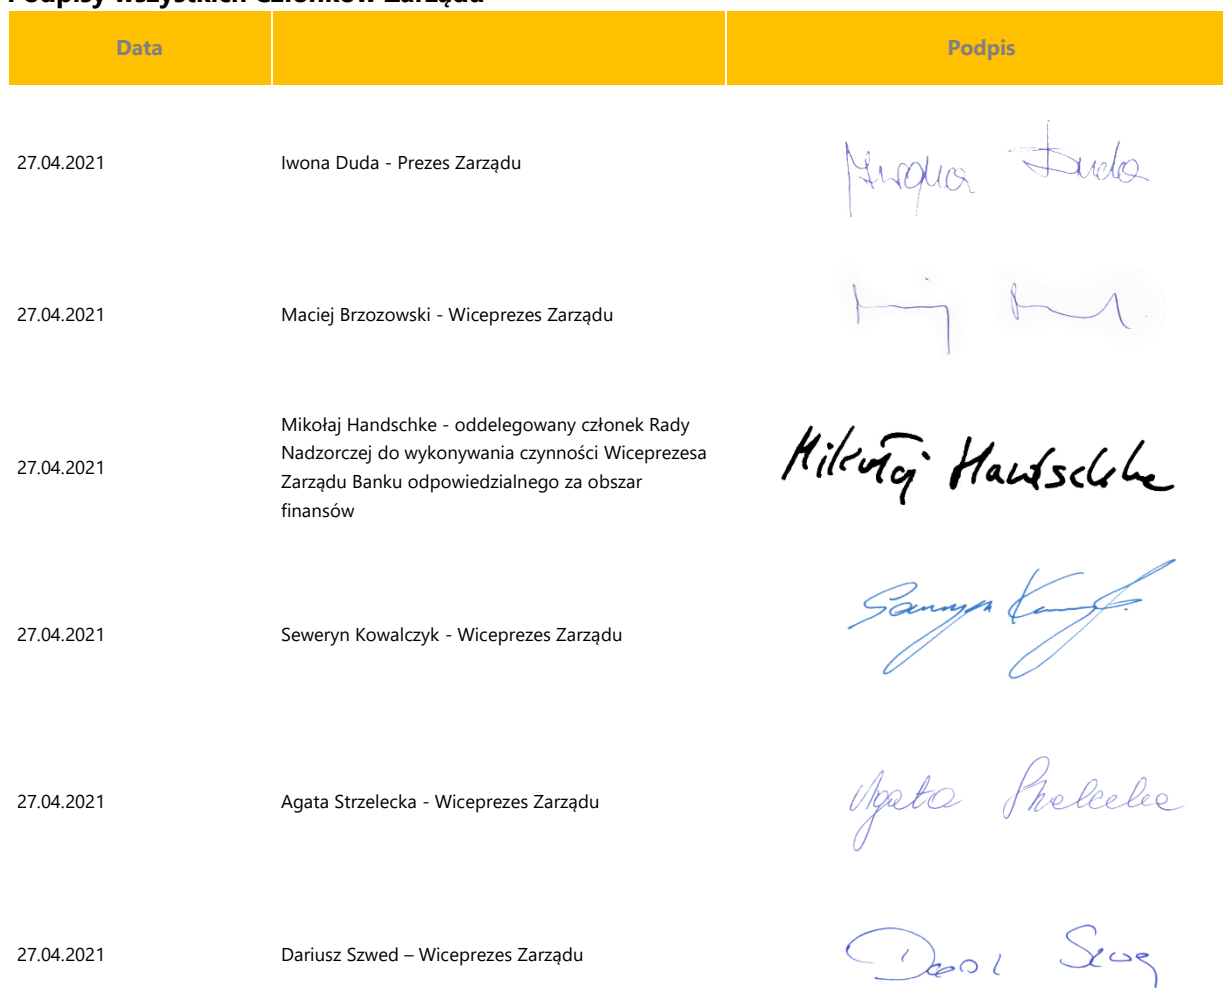 Podpisy wszystkich Członków Zarządu
Data Podpis
27.04.2021 Iwona Duda - Prezes Zarządu Iwona Duda
27.04.2021 Maciej Brzozowski - Wiceprezes Zarządu
27.04.2021 Mikołaj Handschke - oddelegowany członek Rady
Nadzorczej do wykonywania czynności Wiceprezesa
Zarządu Banku odpowiedzialnego za obszar
finansów
Mikołaj Handschke
27.04.2021 Seweryn Kowalczyk - Wiceprezes Zarządu
27.04.2021 Agata Strzelecka - Wiceprezes Zarządu Agata Strzelecka
27.04.2021 Dariusz Szwed – Wiceprezes Zarządu